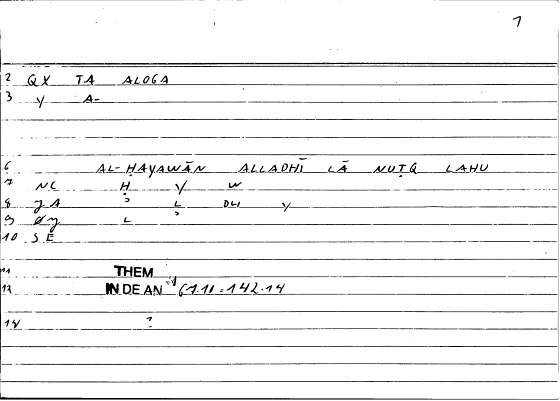 1
2 QX TA ALOGA
3 Y A-
6 AL-ḤAYAWĀN ALLADHĪ LĀ NUṬQ LAHU
7 NC Ḥ Y W
8 JA ʾ L DH Y
9 ØY L ʾ
10 SE
11 THEM
12 IN DE AN 61.11.142.14
14 ?